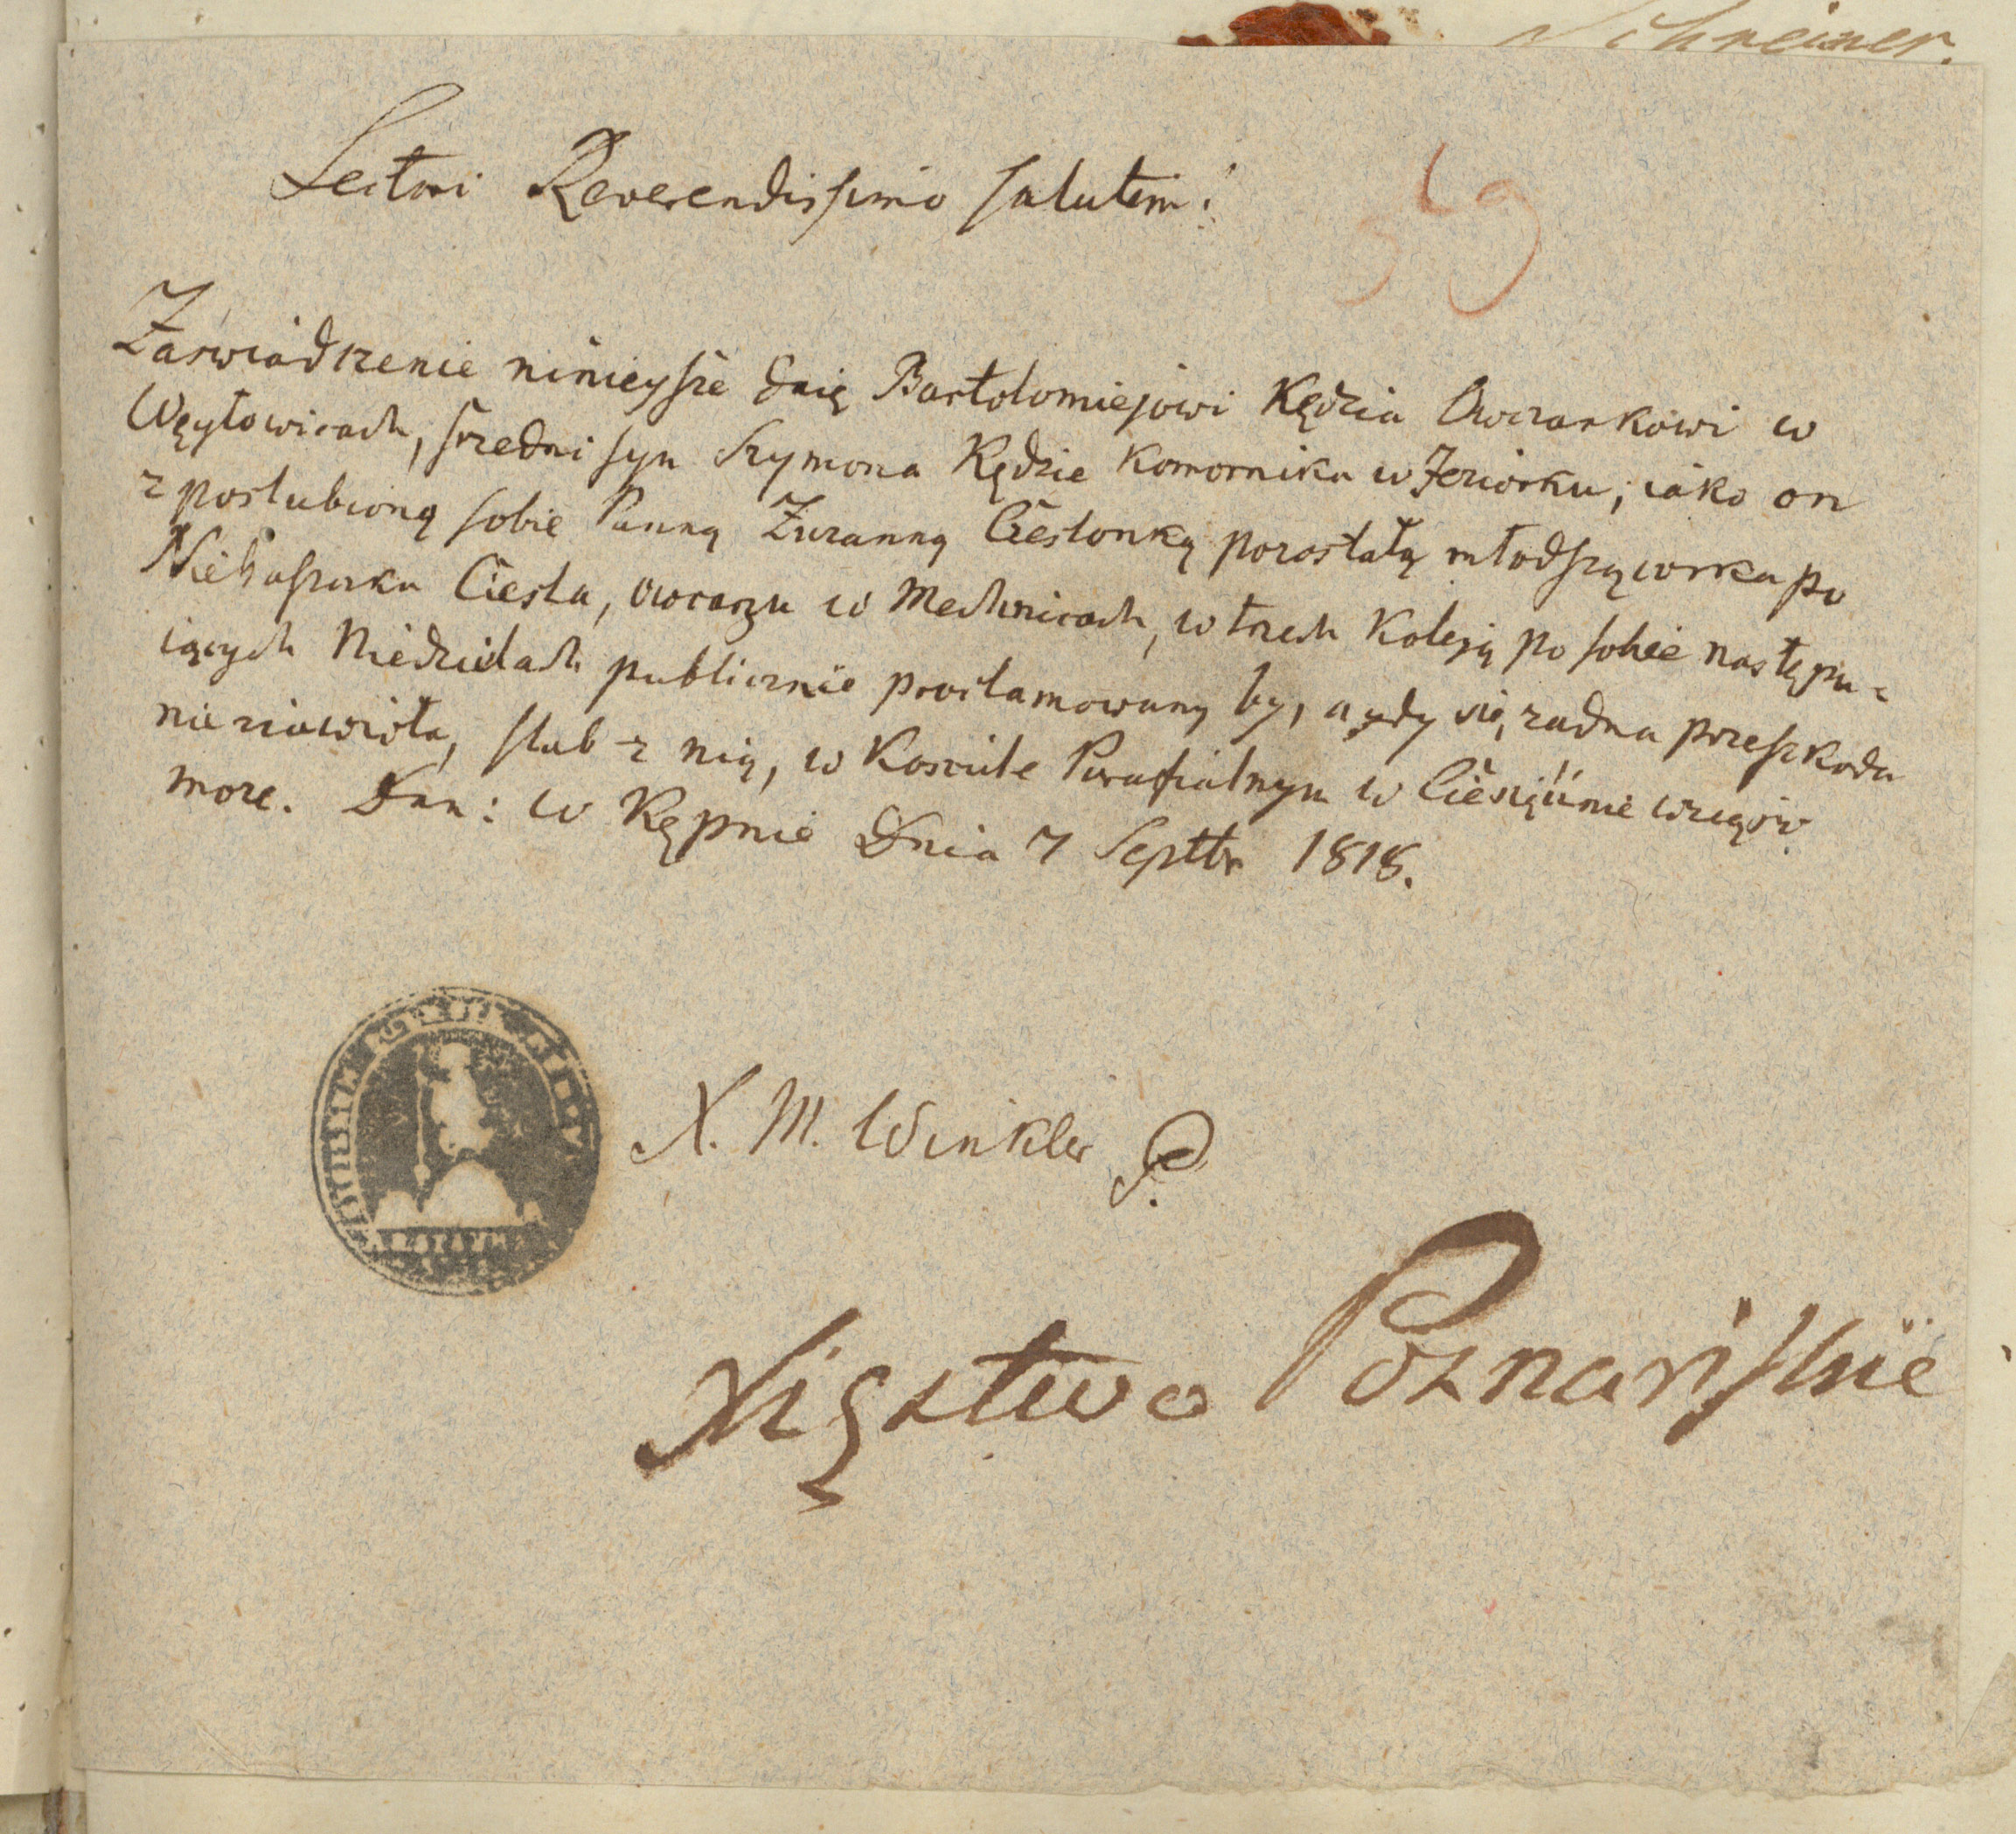 Schreiner.
Lectori Reverendissimo salutem!
59
Zaswiadczenie ninieysze daię Bartolomiejowi Kędzia Owczarkowi w
Węzÿłowicach, szredni syn Szymona Kędzie Komornika w Jeziorku, iako on
z poslubioną sobie Panną Zuzanną Cieslonką pozostałą młodszą corka po
Nieboszczku Ciesla, owcarzu w Mechnicach, w trzech Koleją po sobie następu=
iących Niedzielach publicznie proclamowany by, a gdy się zadna przeszkoda
nie ziawioła, slub z nią, w Kosciele Parafialnym w Ciesięcinie wziąść
moze. Dan: w Kępnie Dnia 7 Septbr 1818.
X. M. Winkler P.
Xięstwo Poznańskie